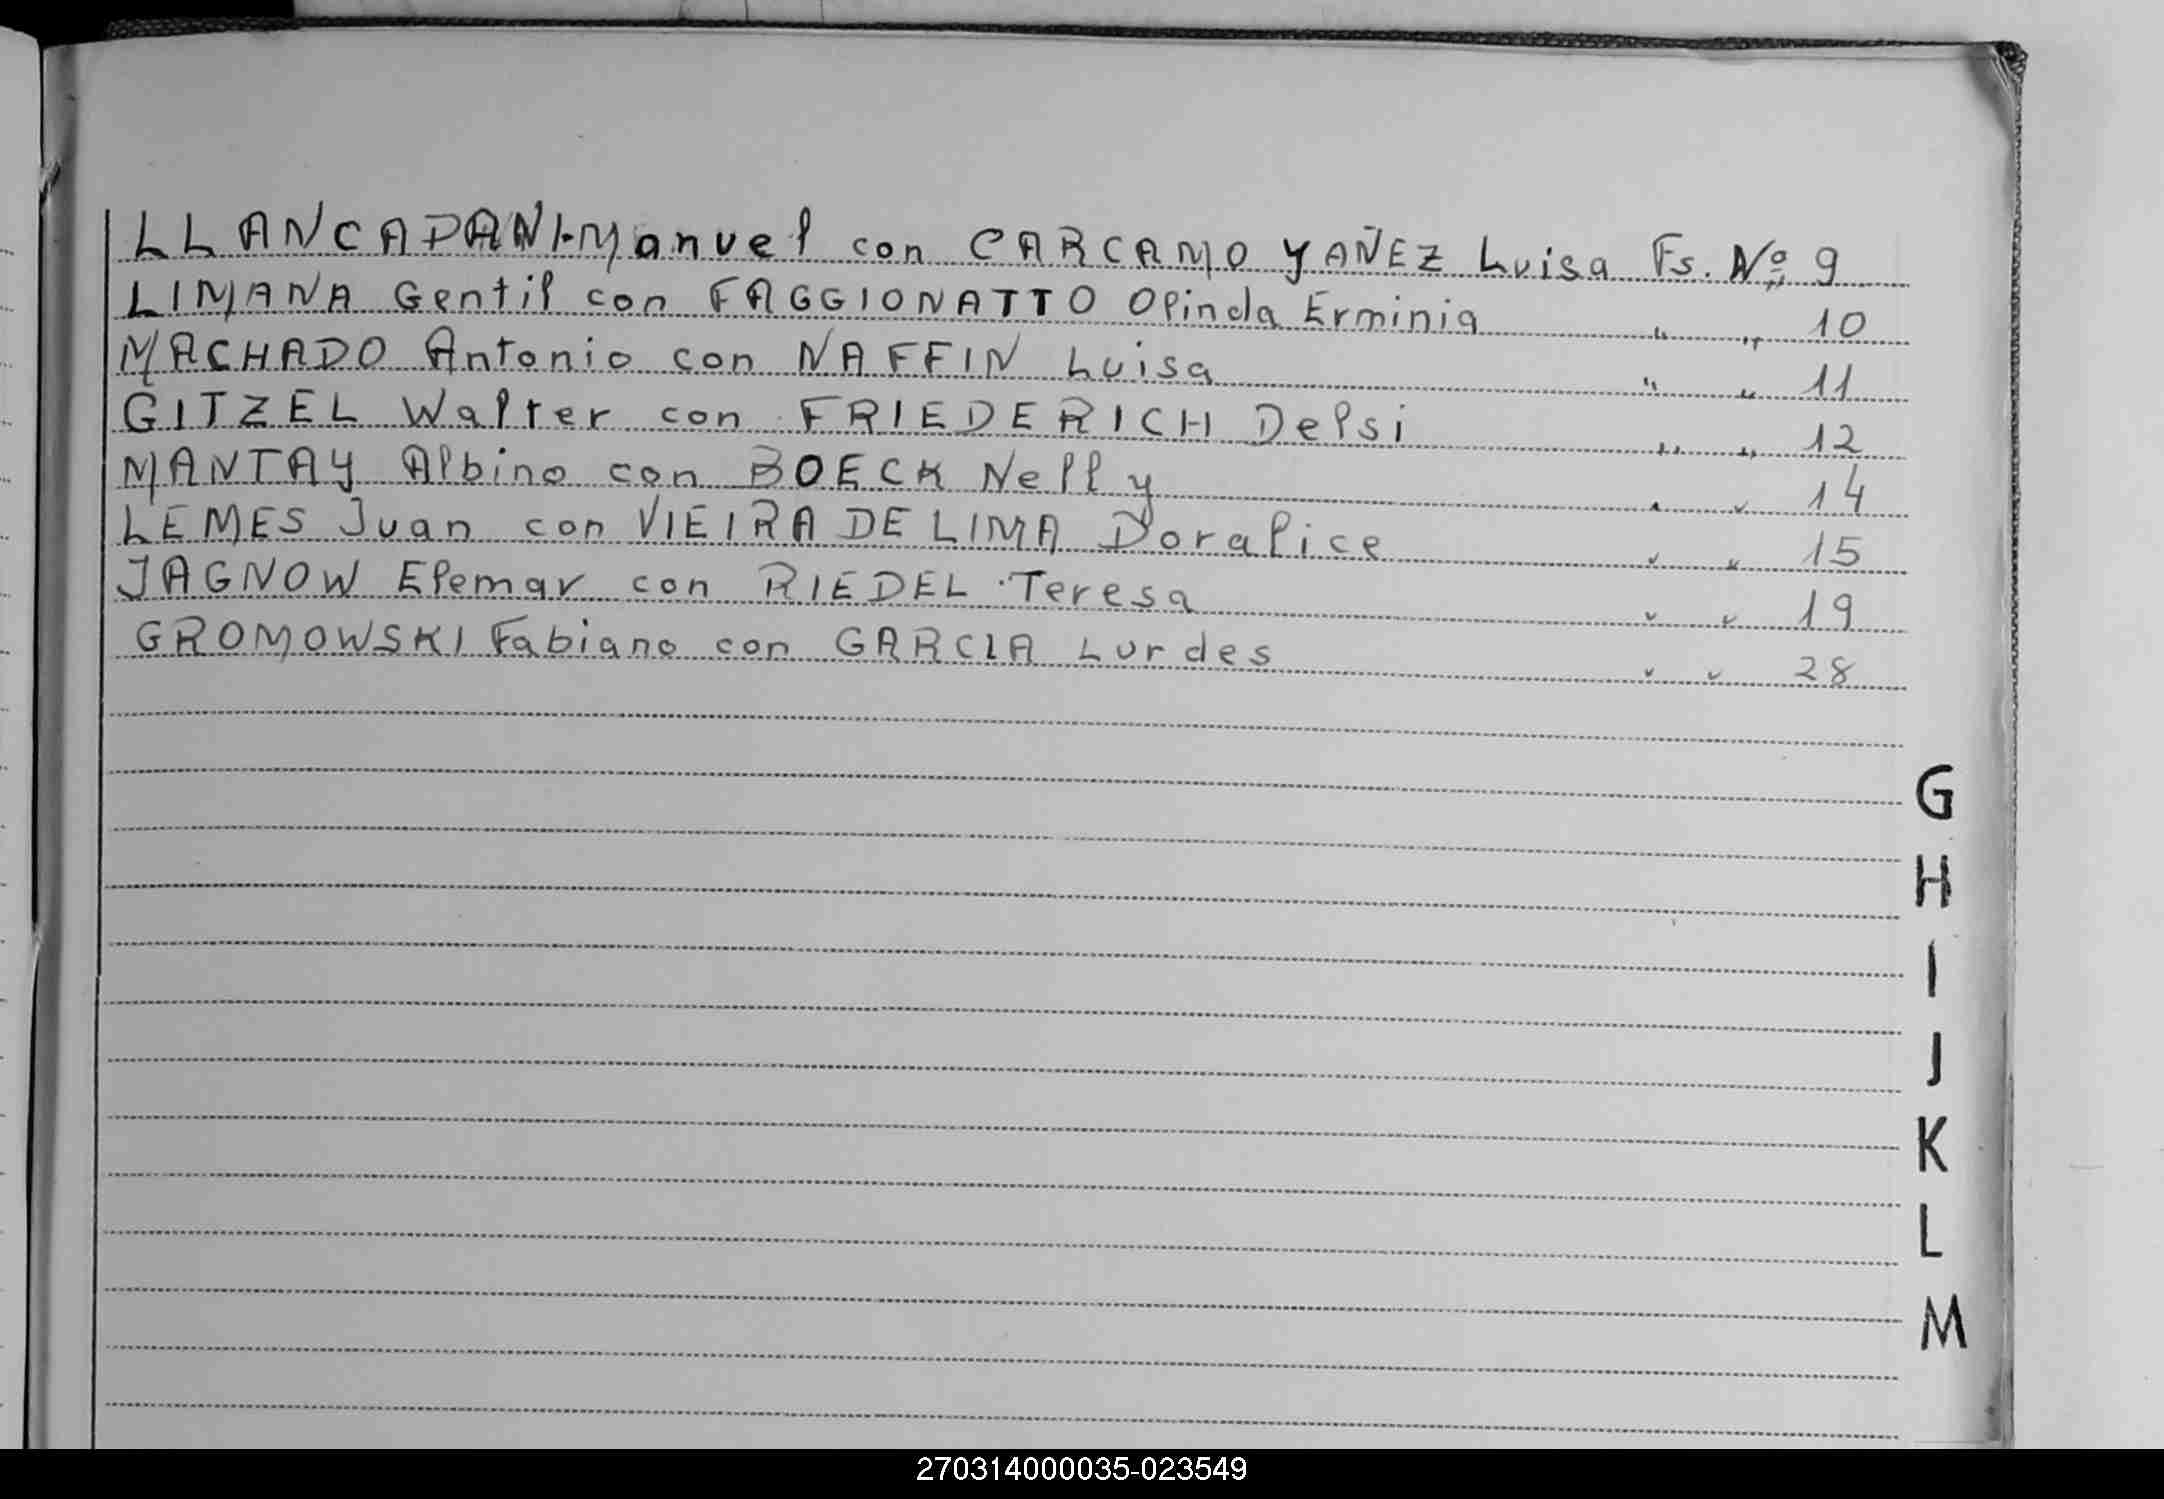 LLANCAPANI Manuel con CARCAMO YAÑEZ Luisa Fs. Nº 9
LIMANA Gentil con FAGGIONATTO Olinda Erminia " " 10
MACHADO Antonio con NAFFIN Luisa " " 11
GITZEL Walter con FRIEDERICH Delsi " " 12
MANTAY Albino con BOECK Nelly " " 14
LEMES Juan con VIEIRA DE LIMA Doralice " " 15
JAGNOW Elemar con RIEDEL Teresa " " 19
GROMOWSKI Fabiano con GARCIA Lurdes " " 28
G
H
I
J
K
L
M
270314000035-023549